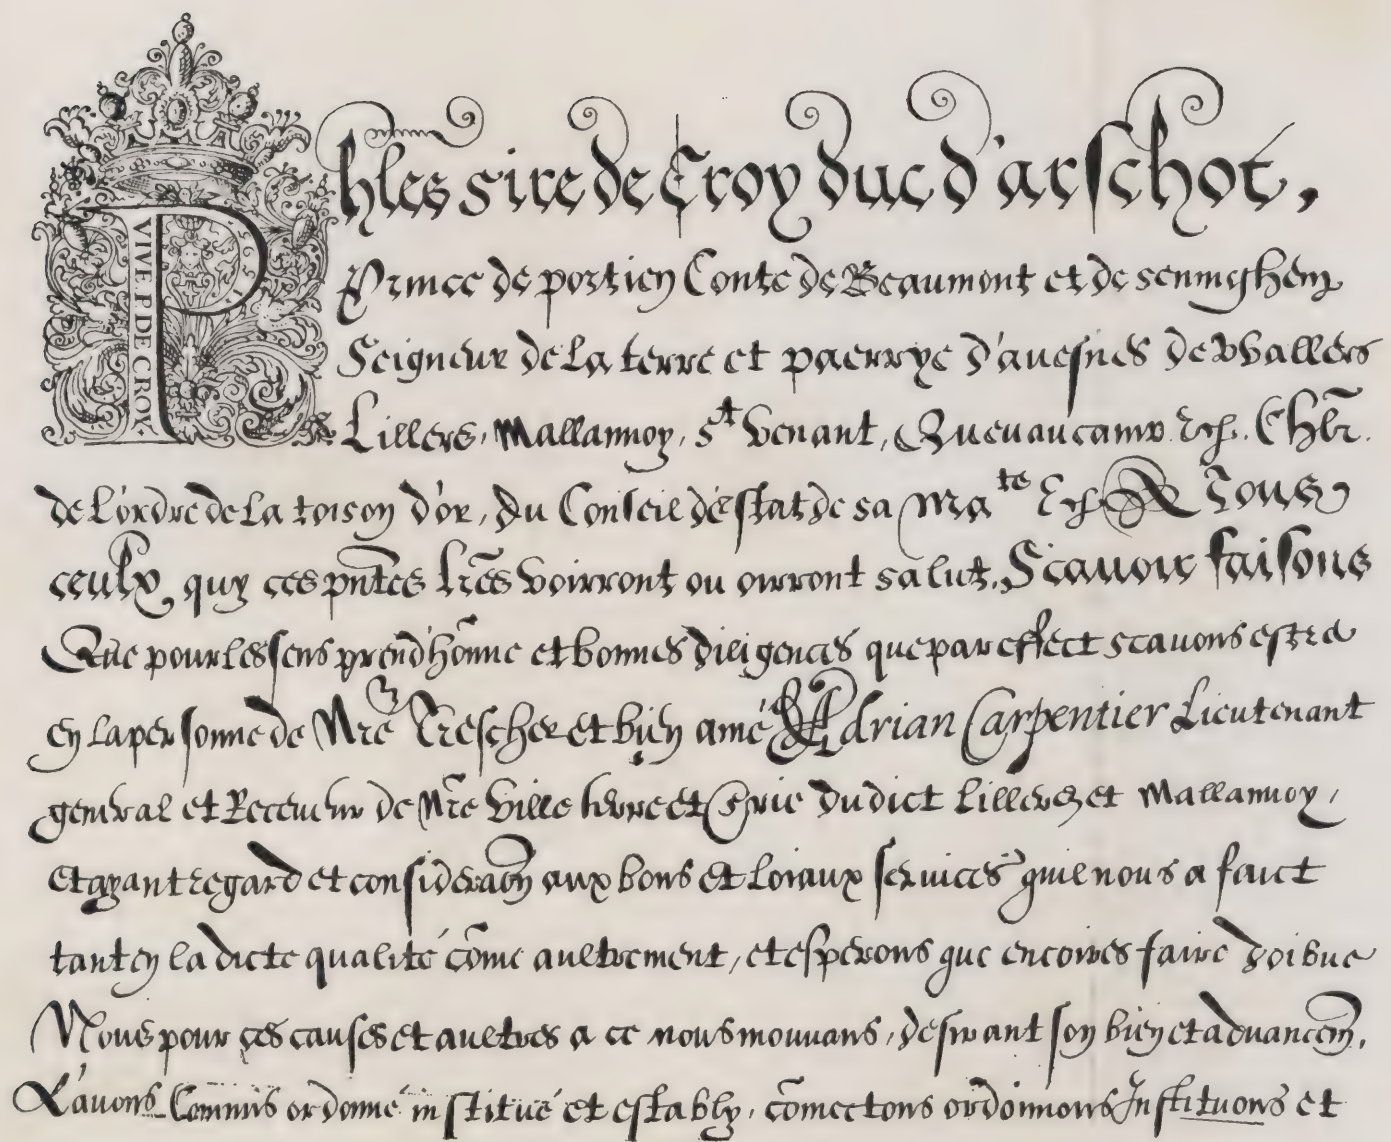 VIVE P DE CROY
Phles sire de Croy duc d'arschot,
Prince de portien Conte de Beaumont et de seninghem
Seigneur de la terre et paerrye d'auesnes de Wallers
Lillers, Mallannoy, st Venant, Queuaucamp. &c. Chlr.
de L'ordre de La toison d'or, du Conseil d'estat de sa Mate &c A Tous
ceulx quy ces pntes lres voirront ou oirront salut. Scauoir faisons
Que pour les sens preud'hōme et bonnes diligences que par effect scauons estre
en la personne de Nre Trescher et bien amé Adrian Carpentier Lieutenant
general et Receueur de Nre Ville terre et Srie dudict Lillers et Mallannoy,
et ayant regard et consideraon aux bons et Loiaux seruices qu'il nous a faict
tant en la dicte qualité cōme aultrement, et esperons que encoires faire doibue
Nous pour ces causes et aultres a ce nous mouuans, desirant son bien et aduancem̄.
L'auons Commis ordonné institué et estably, cōmectons ordonnons Instituons et